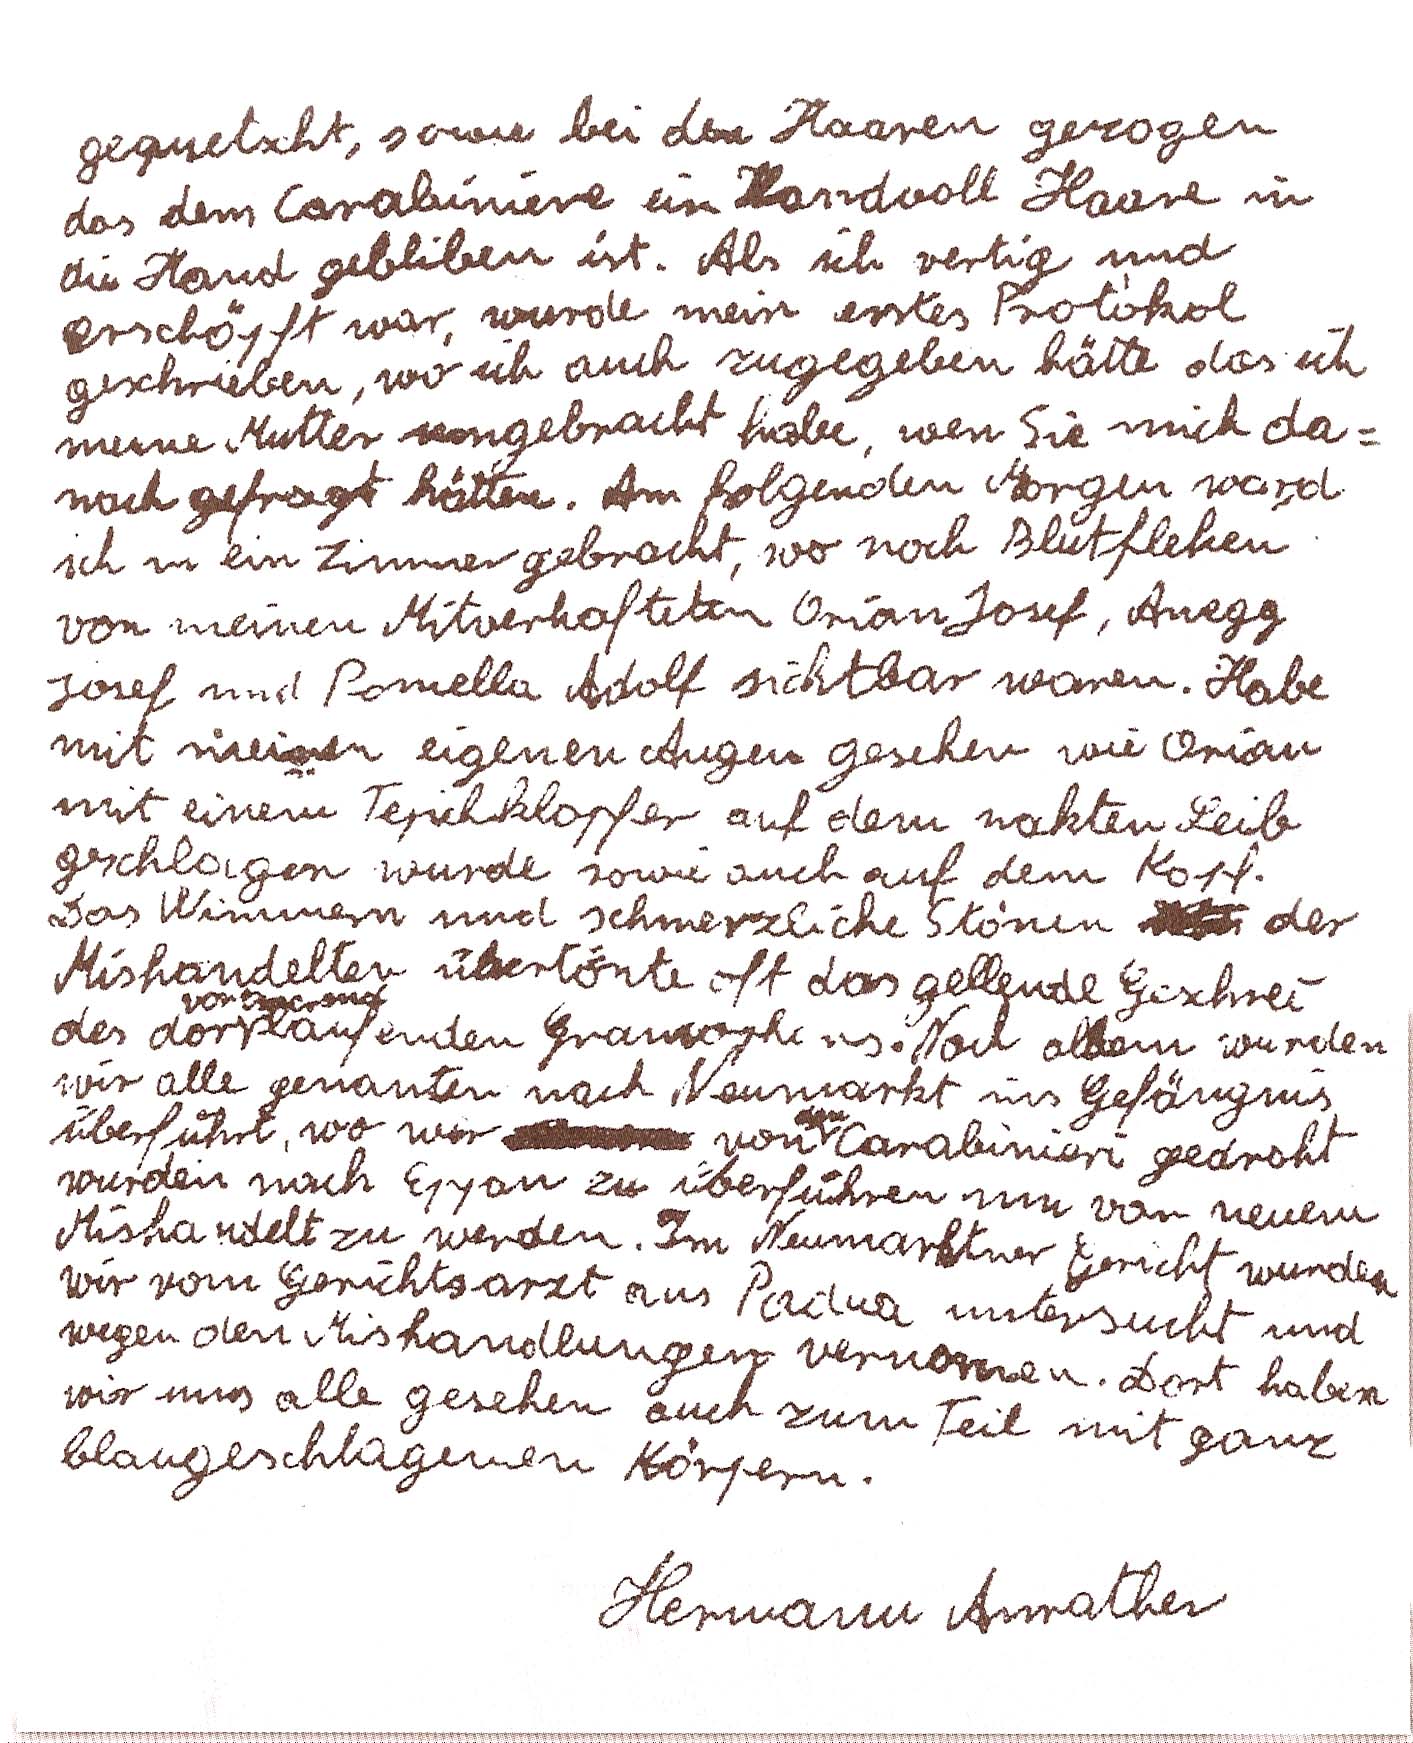 gequetscht, sowie bei den Haaren gezogen
das dem Carabiniere ein Handvoll Haare in
die Hand gebliben ist. Als ich vertig und
erschöpft war, wurde mein erstes Protokol
geschrieben, wo ich auch zugegeben hätte das ich
meine Mutter umgebracht habe, wen Sie mich da=
nach gefragt hätten. Am folgenden Morgen ward
ich in ein Zimmer gebracht, wo noch Blutfleken
von meinen Mitverhafteten Orian Josef, Anegg
Josef und Pomella Adolf sichtbar waren. Habe
mit meinen eigenen Augen gesehen wie Orian
mit einem Tepichklopfer auf dem nakten Leib
geschlagen wurde sowie auch auf dem Kopf.
Das Wimmern und schmerzliche Stönen der
Mishandelten übertönte oft das gellende Geschrei
des dort laufenden Gramophons. Nach allem wurden
wir alle genanten nach Neumarkt ins Gefängnis
überführt, wo wir von den Carabinieri gedroht
wurden nach Eppan zu überführen um von neuem
Mishandelt zu werden. Im Neumarktner Gericht wurden
wir vom Gerichtsarzt aus Padua untersucht und
wegen den Mishandlungen vernomen. Dort haben
wir uns alle gesehen auch zum Teil mit ganz
blaugeschlagenen Körpern.
Hermann Anrather